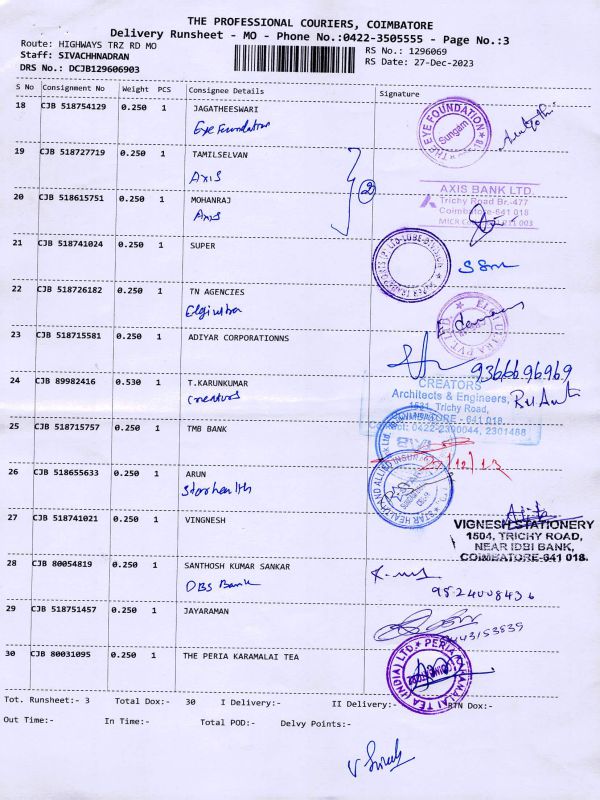 THE PROFESSIONAL COURIERS, COIMBATORE
Delivery Runsheet - MO - Phone No.:0422-3505555 - Page No.:3
Route: HIGHWAYS TRZ RD MO
RS No.: 1296069
Staff: SIVACHHNADRAN
RS Date: 27-Dec-2023
DRS No.: DCJB129606903
S No Consignment No Weight PCS Consignee Details Signature
18 CJB 518754129 0.250 1 JAGATHEESWARI
Eye Foundation
THE EYE FOUNDATION
Sungam
19 CJB 518727719 0.250 1 TAMILSELVAN
Axis
2
20 CJB 518615751 0.250 1 MOHANRAJ
Axis
AXIS BANK LTD.
Trichy Road Br.-477
Coimbatore-641 018
21 CJB 518741024 0.250 1 SUPER
22 CJB 518726182 0.250 1 TN AGENCIES
23 CJB 518715581 0.250 1 ADIYAR CORPORATIONNS
9366696969
24 CJB 89982416 0.530 1 T.KARUNKUMAR
Creators
CREATORS
Architects & Engineers,
1531, Trichy Road,
COIMBATORE - 641 018.
Contact: 0422-2300044, 2301488
25 CJB 518715757 0.250 1 TMB BANK
26 CJB 518655633 0.250 1 ARUN
Star health
STAR HEALTH AND ALLIED INSURANCE
27 CJB 518741021 0.250 1 VINGNESH
VIGNESH STATIONERY
1504, TRICHY ROAD,
NEAR IDBI BANK,
COIMBATORE-641 018.
28 CJB 80054819 0.250 1 SANTHOSH KUMAR SANKAR
DBS Bank
9524008436
29 CJB 518751457 0.250 1 JAYARAMAN
30 CJB 80031095 0.250 1 THE PERIA KARAMALAI TEA
PERIA KARAMALAI TEA (INDIA) LTD.
Tot. Runsheet:- 3 Total Dox:- 30 I Delivery:- II Delivery:- RTN Dox:-
Out Time:- In Time:- Total POD:- Delvy Points:-